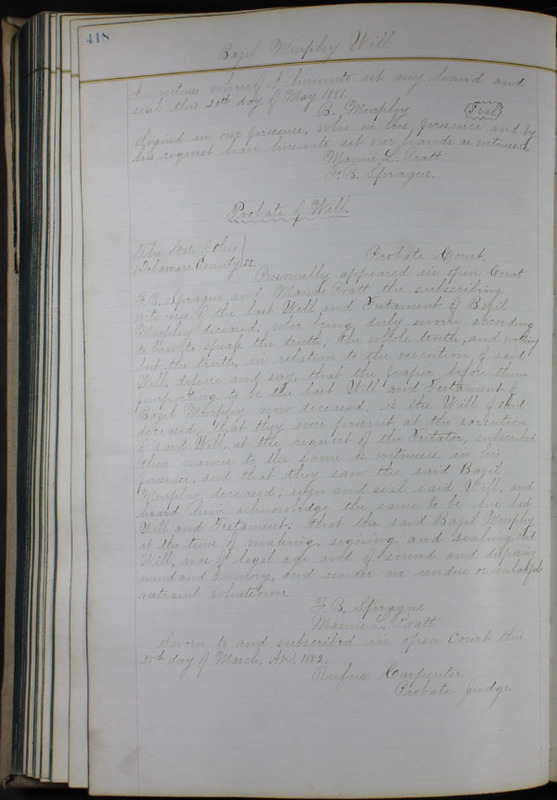 418
Bazil Murphy Will
In witness whereof I hereunto set my hand and
seal this 20th day of May 1881.
B. Murphy Seal
Signed in our presence, who in his presence and by
his request have hereunto set our hands as witnesses
Mannie L. Pratt
F. B. Sprague.
Probate of Will.
The State of Ohio
Delaware County SS. Probate Court.
Personally appeared in open Court
F. B. Sprague and Mannie Pratt the subscribing
witnesses of the last Will and Testament of Bazil
Murphy deceased, who being duly sworn according
to law to speak the truth, the whole truth, and nothing
but the truth, in relation to the execution of said
Will, depose and say, that the paper before them
purporting to be the last Will and Testament of
Bazil Murphy now deceased, is the Will of said
deceased, that they were present at the execution
of said Will, at the request of the Testator, subscribed
their names to the same as witnesses in his
presence, and that they saw the said Bazil
Murphy, deceased, sign and seal said Will, and
heard him acknowledge the same to be his last
Will and Testament, that the said Bazil Murphy
at the time of making, signing and sealing said
Will, was of legal age and of sound and disposing
mind and memory, and under no undue or unlawful
restraint whatsoever
F. B. Sprague
Mannie L. Pratt
Sworn to and subscribed in open Court this
28th day of March, A.D. 1882.
Rufus Carpenter
Probate Judge